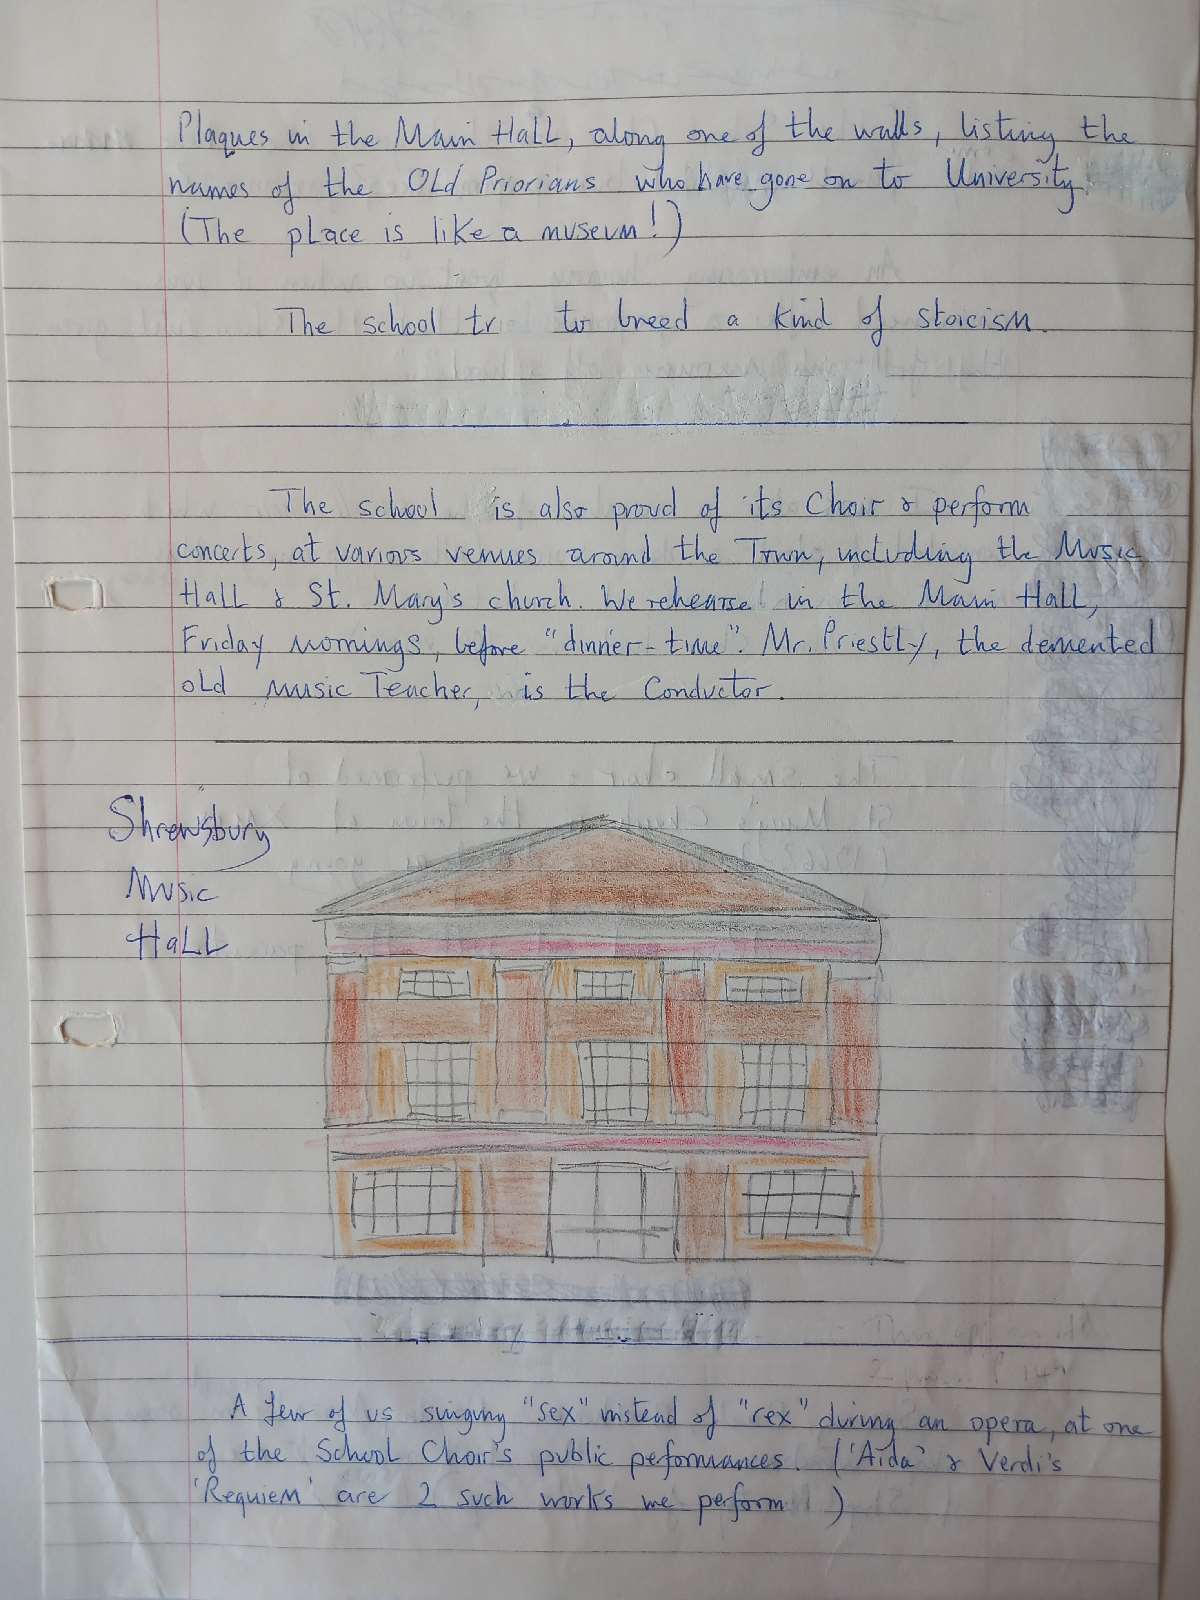 Plaques in the Main Hall, along one of the walls, listing the
names of the Old Priorians who have gone on to University.
(The place is like a museum!)
The school tr to breed a kind of stoicism.
The school is also proud of its Choir & perform
concerts, at various venues around the Town, including the Music
Hall & St. Mary's church. We rehearse in the Main Hall,
Friday mornings, before "dinner-time". Mr. Priestly, the demented
old music Teacher, is the Conductor.
Shrewsbury
Music
Hall
A few of us singing "sex" instead of "rex" during an opera, at one
of the School Choir's public performances. ('Aida' & Verdi's
'Requiem' are 2 such works we perform )